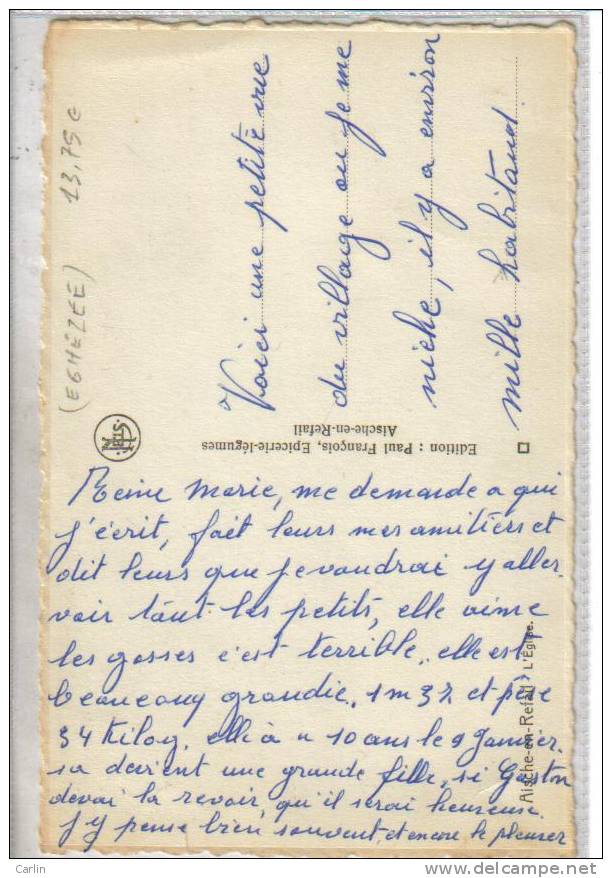 Voici une petite vue
du village ou je me
niche, il y a environ
mille habitand.
Reine Marie, me demande a qui
j'écrit, fait leurs mes amitiers et
dit leurs que je voudrai y aller
voir tout les petits, elle aime
les gosses c'est terrible, elle est
beaucoup grandie, 1m32 et pèse
34 Kilog, elle à 10 ans le 9 Janvier.
sa devient une grande fille, si Gaston
devai la revoir, qu'il serai heureuse.
J'y pense bien souvent, et encore le pleurer
Edition : Paul François, Epicerie-légumes
Aische-en-Refail
Aische-en-Refail L'Église.
(EGHEZEE) 13,75 €
Carlin
www.delcampe.net